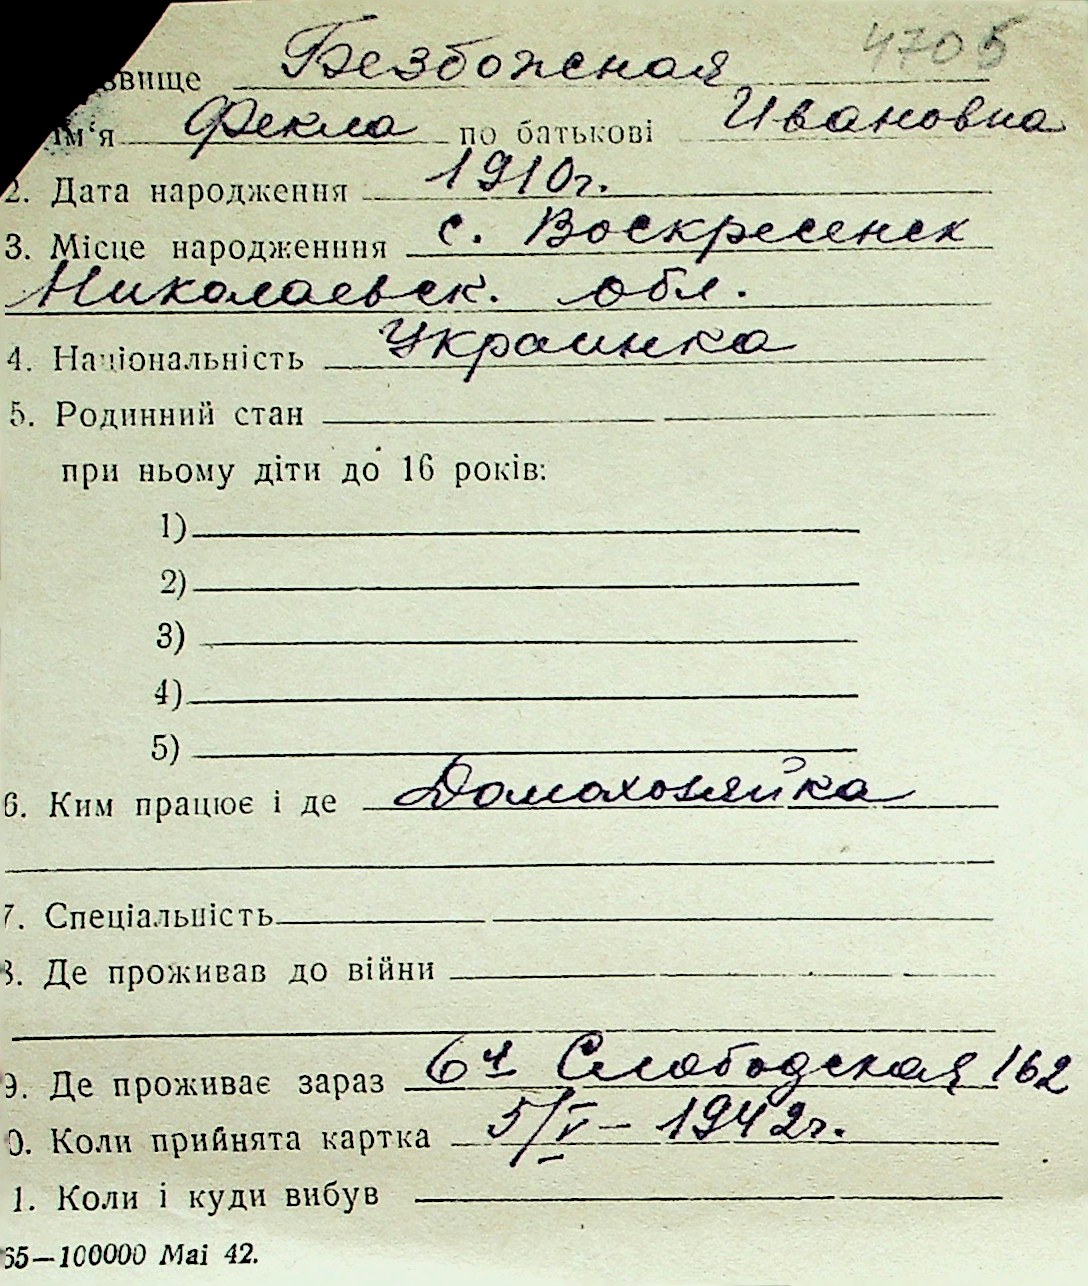 звище Безбожная 4705
Ім‘я Фекла по батькові Ивановна
2. Дата народження 1910г.
3. Місце народженння с. Воскресенск
Николаевск. обл.
4. Національність Украинка
5. Родинний стан
при ньому діти до 16 років:
1)
2)
3)
4)
5)
6. Ким працює і де Домохозяйка
7. Спеціальність
8. Де проживав до війни
9. Де проживає зараз 6я Слободская 162
0. Коли прийнята картка 5/V – 1942г.
1. Коли і куди вибув
65—100000 Mai 42.